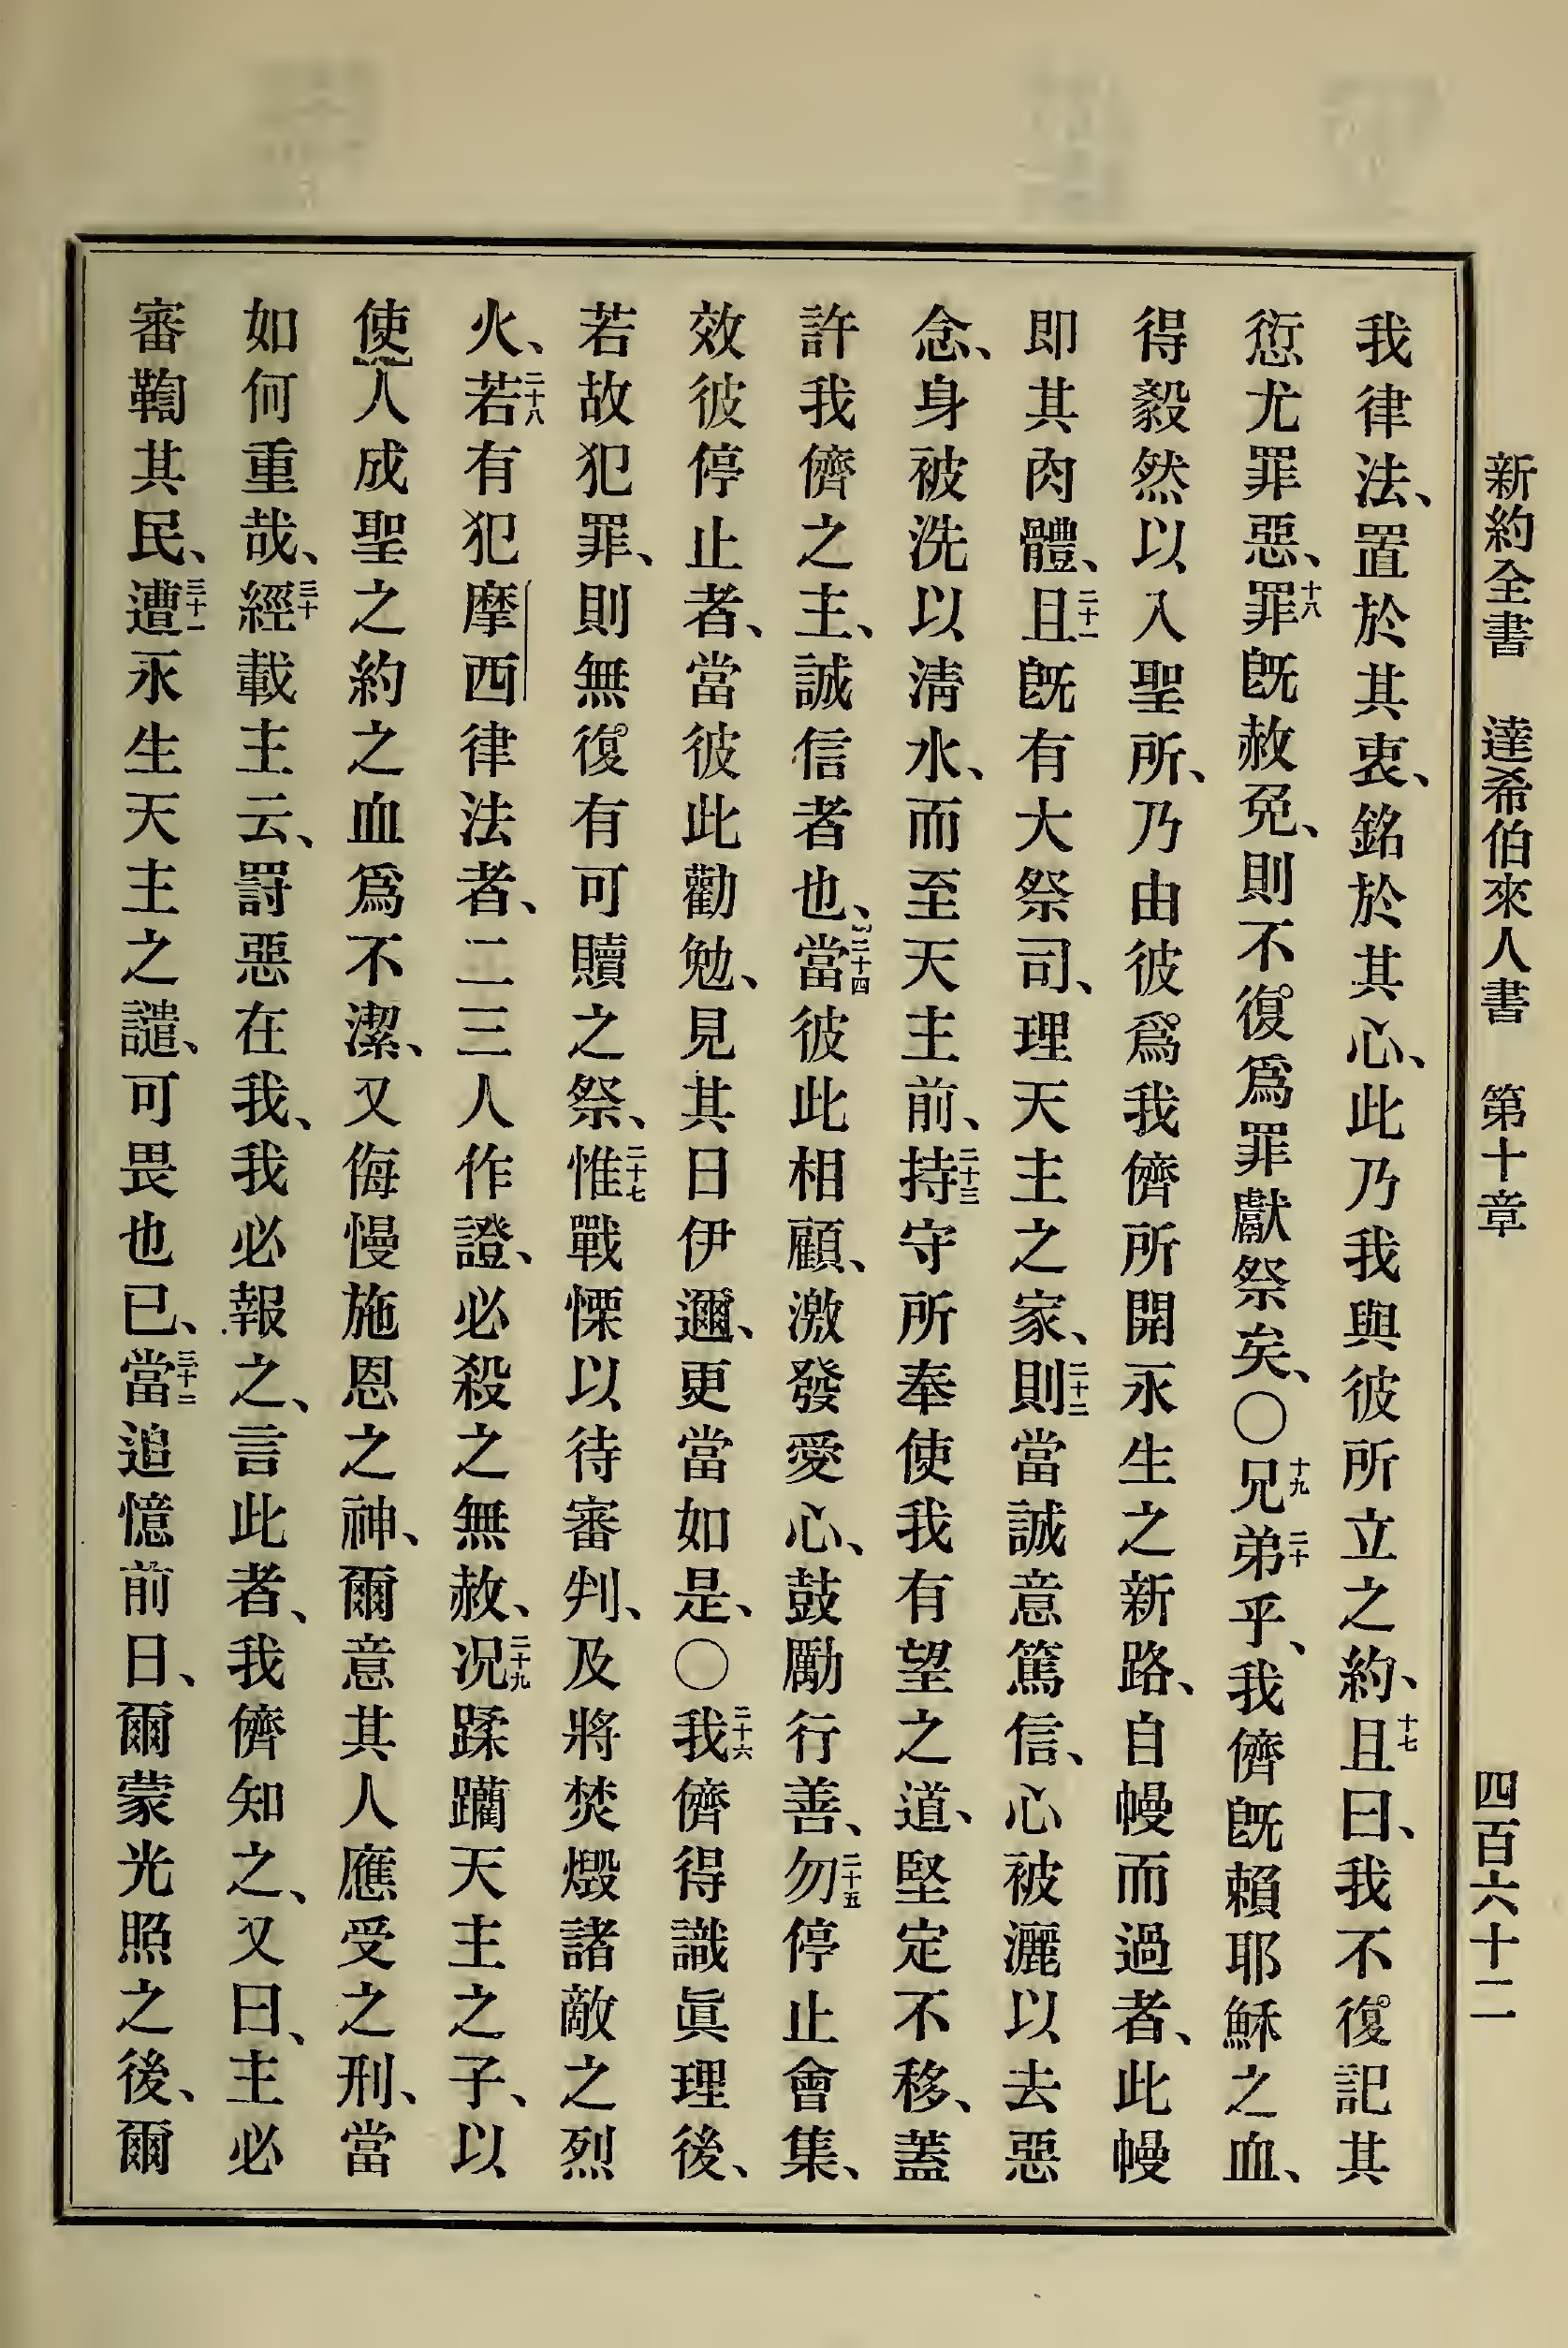 新約全書 達希伯來人書 第十章 四百六十二
我律法、置於其衷、銘於其心、此乃我與彼所立之約、十七且曰、我不復記其
愆尤罪惡、十八罪旣赦免、則不復爲罪獻祭矣、〇十九兄二十弟乎、我儕旣賴耶穌之血、
得毅然以入聖所、乃由彼爲我儕所開永生之新路、自幔而過者、此幔
卽其肉體、二十一且旣有大祭司、理天主之家、二十二則當誠意篤信、心被灑以去惡
念、身被洗以淸水、而至天主前、二十三持守所奉使我有望之道、堅定不移、蓋
許我儕之主、誠信者也、二十四當彼此相顧、激發愛心、鼓勵行善、二十五勿停止會集、
效彼停止者、當彼此勸勉、見其日伊邇、更當如是、〇二十六我儕得識眞理後、
若故犯罪、則無復有可贖之祭、二十七惟戰慄以待審判、及將焚燬諸敵之烈
火、二十八若有犯摩西律法者、二三人作證、必殺之無赦、二十九况蹂躪天主之子、以
使人成聖之約之血爲不潔、又侮慢施恩之神、爾意其人應受之刑、當
如何重哉、三十經載主云、罰惡在我、我必報之、言此者、我儕知之、又曰、主必
審鞫其民、三十一遭永生天主之譴、可畏也已、三十二當追憶前日、爾蒙光照之後、爾